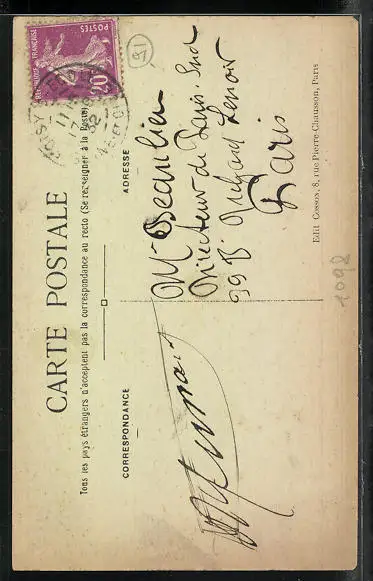 CARTE POSTALE
Tous les pays étrangers n'acceptent pas la correspondance au recto (Se renseigner à la Poste)
CORRESPONDANCE
ADRESSE
RÉPUBLIQUE FRANÇAISE
POSTES
20c
91
Mr Beaulieu
Directeur de Paris-Sud
99 B Richard Lenoir
Paris
Edit Cosson, 8, rue Pierre-Chausson, Paris
1092